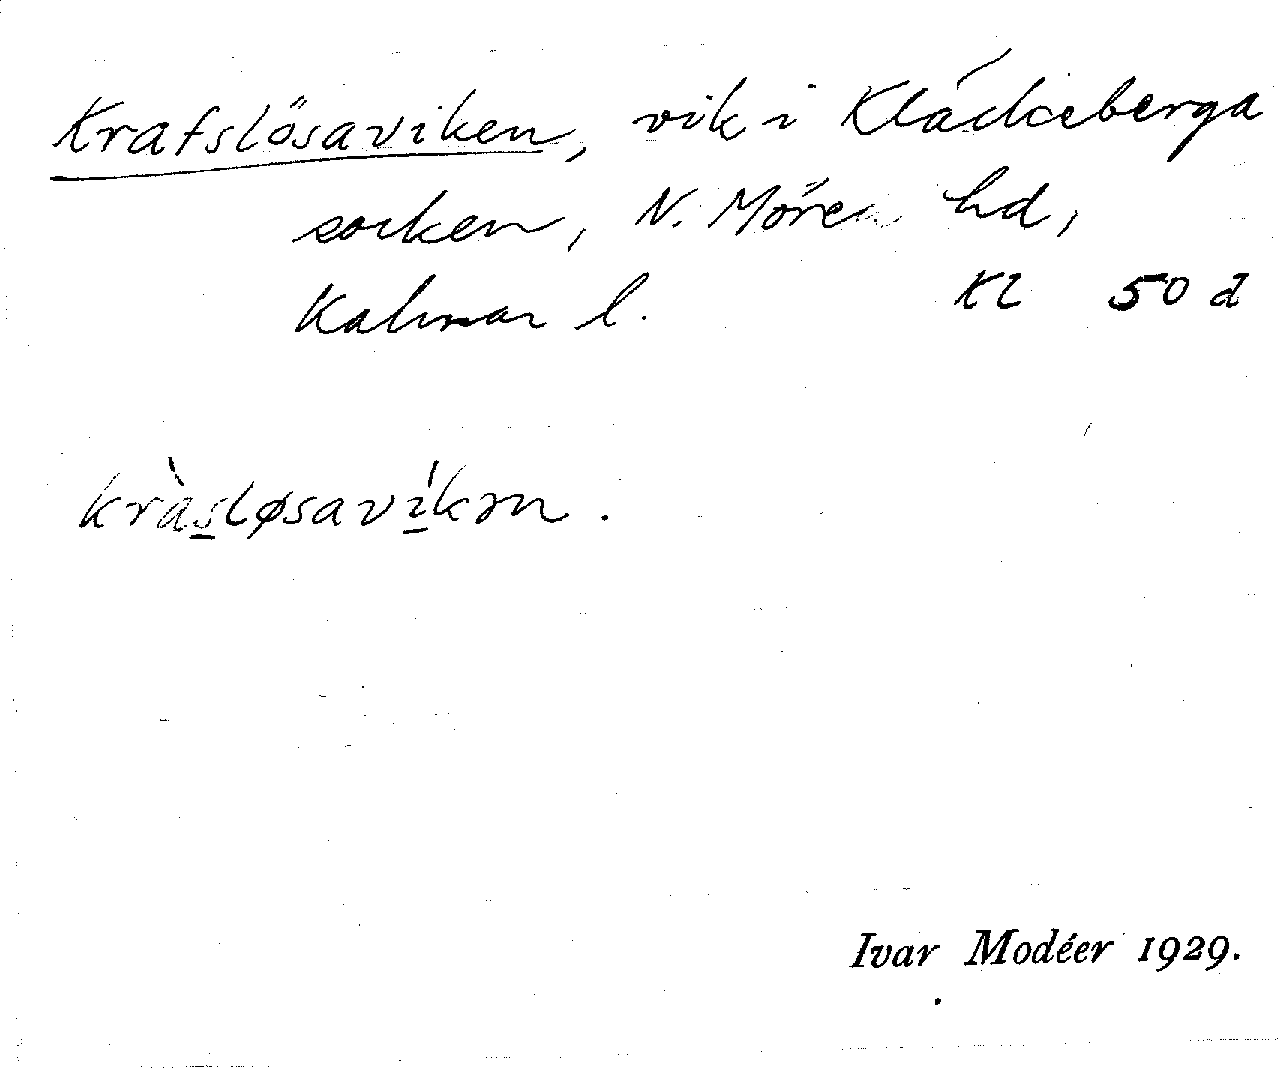 Krafslösaviken, vik i Kläckeberga
socken, N. Möre hd,
Kalmar l. Kl 50 d
kràsløsavíkən.
Ivar Modéer 1929.